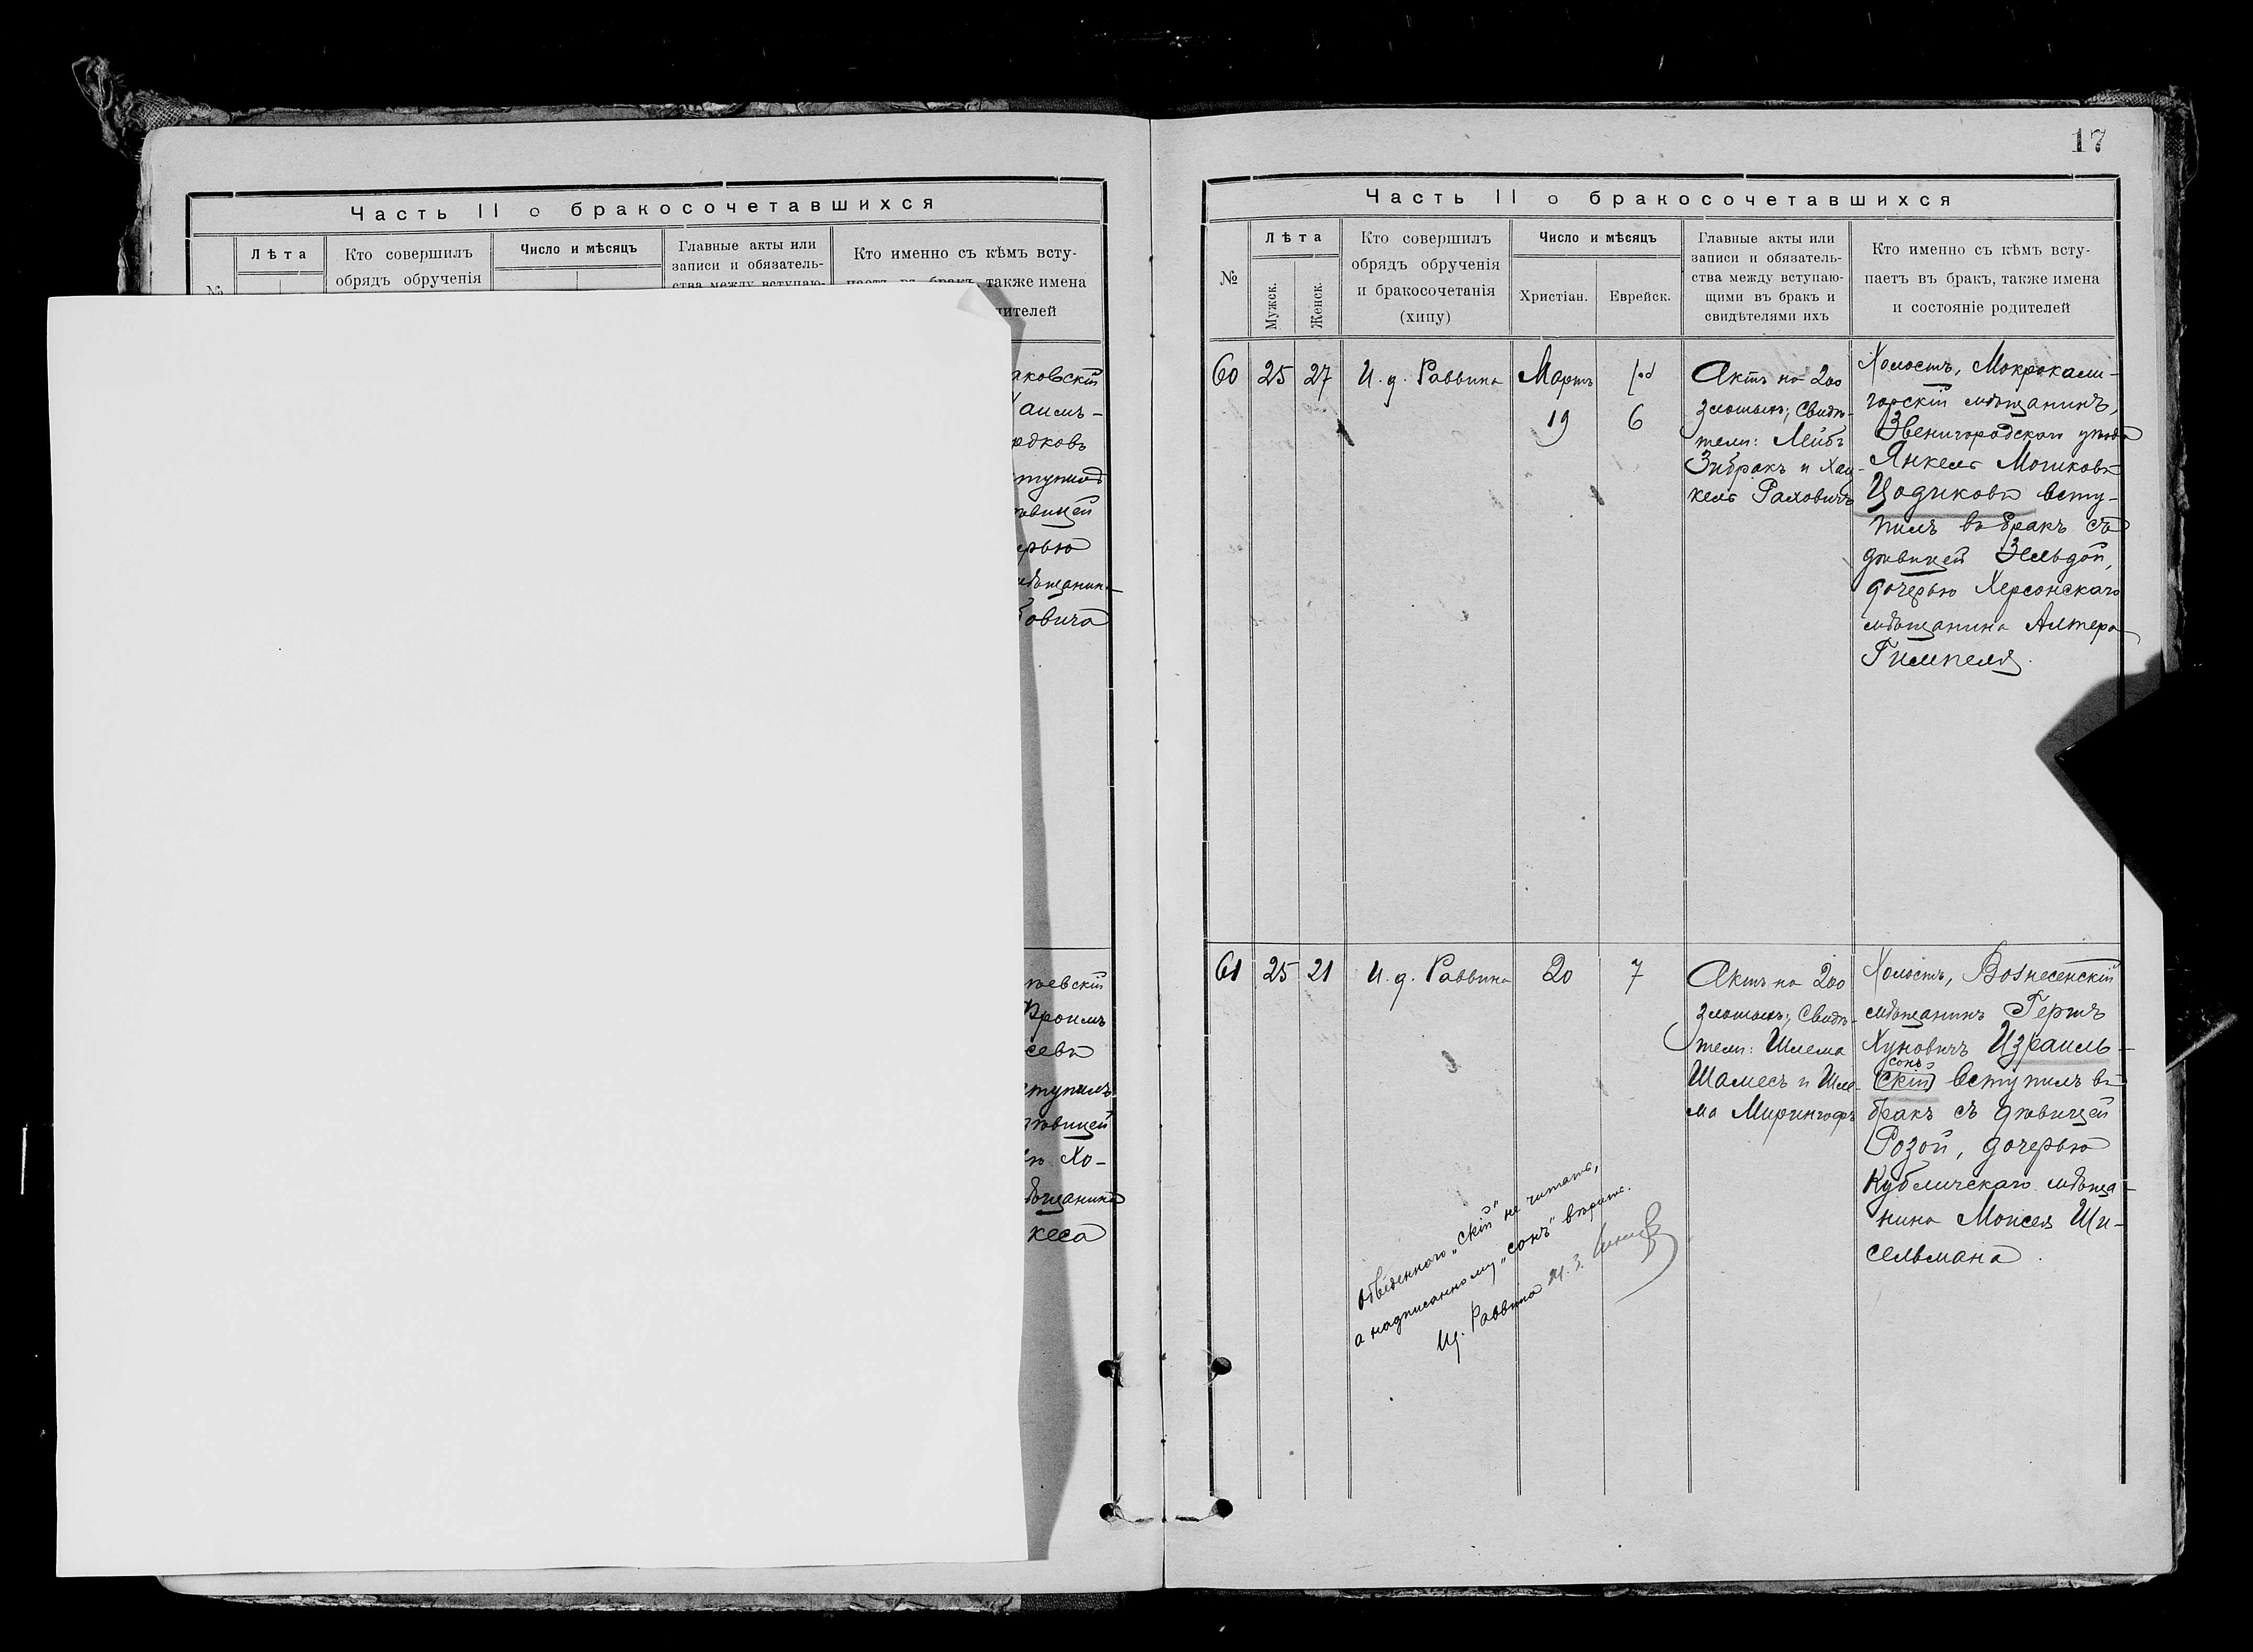 17
Часть II о бракосочетавшихся
Лѣта
Кто совершилъ
обрядъ обрученія
Число и мѣсяцъ
Главные акты или
записи и обязатель-
ства между вступаю-
Кто именно съ кѣмъ всту-
паетъ въ бракъ, также имена
дителей
№
аковскій
Хаимъ-
ступилъ
ѣвицей
ерью
мѣщанин-
бовича
Фроимъ
сева
ступилъ
дѣвицей
Хо-
ѣщанина
кеса
Часть II о бракосочетавшихся
№
Лѣта
Мужск.
Женск.
Кто совершилъ
обрядъ обрученія
и бракосочетанія
(хипу)
Число и мѣсяцъ
Христіан.
Еврейск.
Главные акты или
записи и обязатель-
ства между вступаю-
щими въ бракъ и
свидѣтелями ихъ
Кто именно съ кѣмъ всту-
паетъ въ бракъ, также имена
и состояніе родителей
60
25
27
И. д. Раввина
Мартъ
19
6
Актъ на 200
злотыхъ; Свидѣ-
тели: Лейбъ
Зибракъ и Хац-
кель Рахович
Холостъ, Мокрокали-
горскій мѣщанинъ,
Звенигородскаго уѣзда
Янкель Мошковъ
Цодиковъ всту-
пилъ въ бракъ съ
дѣвицей Зельдой,
дочерью Херсонскаго
мѣщанина Алтера
Гимпеля.
61
25
21
И. д. Раввина
20
7
Актъ на 200
злотыхъ; Свидѣ-
тели: Шлема
Шамесъ и Шле-
ма Мирингофъ
Холостъ, Вознесенскій
мѣщанинъ Гершъ
Хуновичъ Израиль-
сонъ
скій вступилъ въ
бракъ съ дѣвицей
Розой, дочерью
Кубличскаго мѣща-
нина Моисея Ши-
сельмана.
Обведеннаго "скій" не читать,
а надписанному "сонъ" вѣрить.
И. д. Раввина